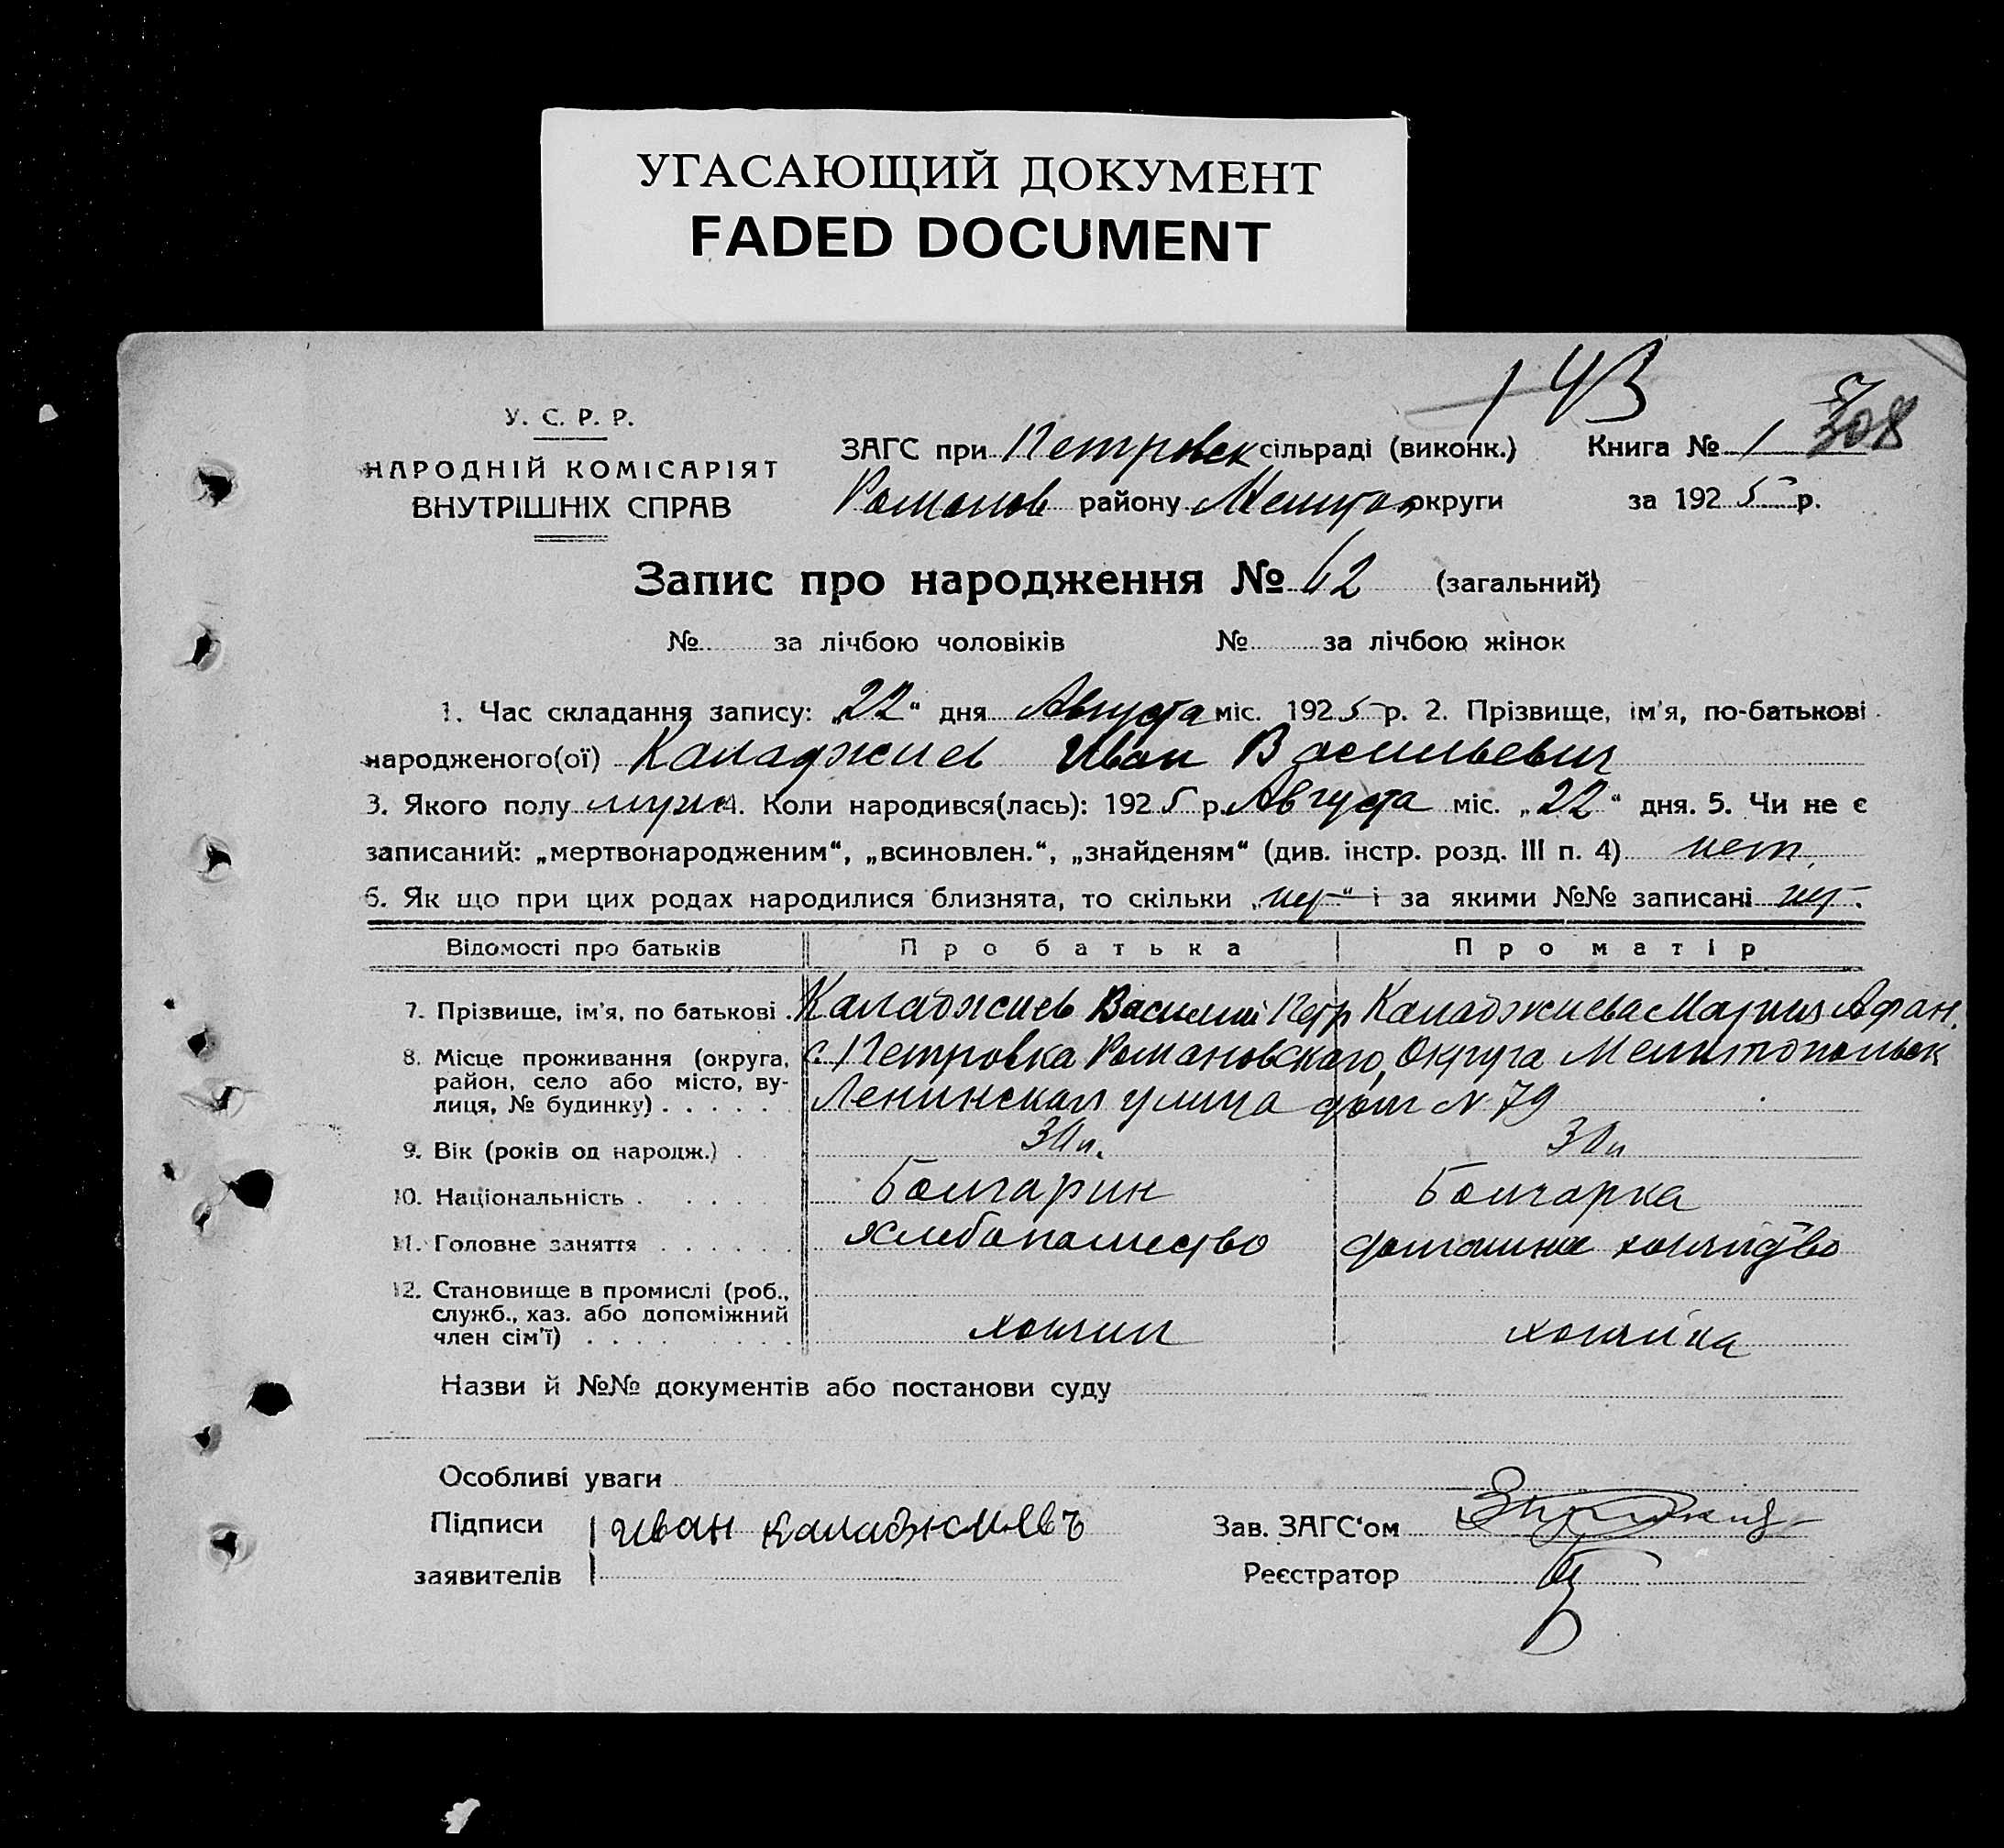 УГАСАЮЩИЙ ДОКУМЕНТ
FADED DOCUMENT
143
308
У. С. Р. Р.
НАРОДНІЙ КОМІСАРІЯТ
ВНУТРІШНІХ СПРАВ
ЗАГС при Петровск сільраді (виконк.) Книга № 1
Романов району Мелитоп округи за 1925 р.
Запис про народження № 62 (загальний)
№ за лічбою чоловіків № за лічбою жінок
1. Час складання запису: „22“ дня Августа міс. 1925 р. 2. Прізвище, ім'я, по-батькові
народженого(ої) Каладжиев Иван Васильевич
3. Якого полу муж 4. Коли народився(лась): 1925 р. Августа міс. „22“ дня. 5. Чи не є
записаний: „мертвонародженим“, „всиновлен.“, „знайденям“ (див. інстр. розд. III п. 4) нет
6. Як що при цих родах народилися близнята, то скільки „нет“ і за якими №№ записані нет.
Відомості про батьків Про батька Про матір
7. Прізвище, ім'я, по батькові . Каладжиев Василий Петр Каладжиева Мария Афан.
8. Місце проживання (округа, с. Петровка Романовского, Округа Мелитопольск
район, село або місто, ву-
лиця, № будинку) . . . . . Ленинская улица дом N 79
9. Вік (років од народж.) . 30 л. 30 л
10. Національність . . . . Болгарин Болгарка
11. Головне заняття . . . . . . Хлебопашество домашнее хозяйство
12. Становище в промислі (роб.,
служб., хаз. або допоміжний
член сім'ї) . . . . . . хозяин хозяйка
Назви й №№ документів або постанови суду
Особливі уваги
Підписи Иван Каладжиевъ Зав. ЗАГС'ом
заявителів Реєстратор